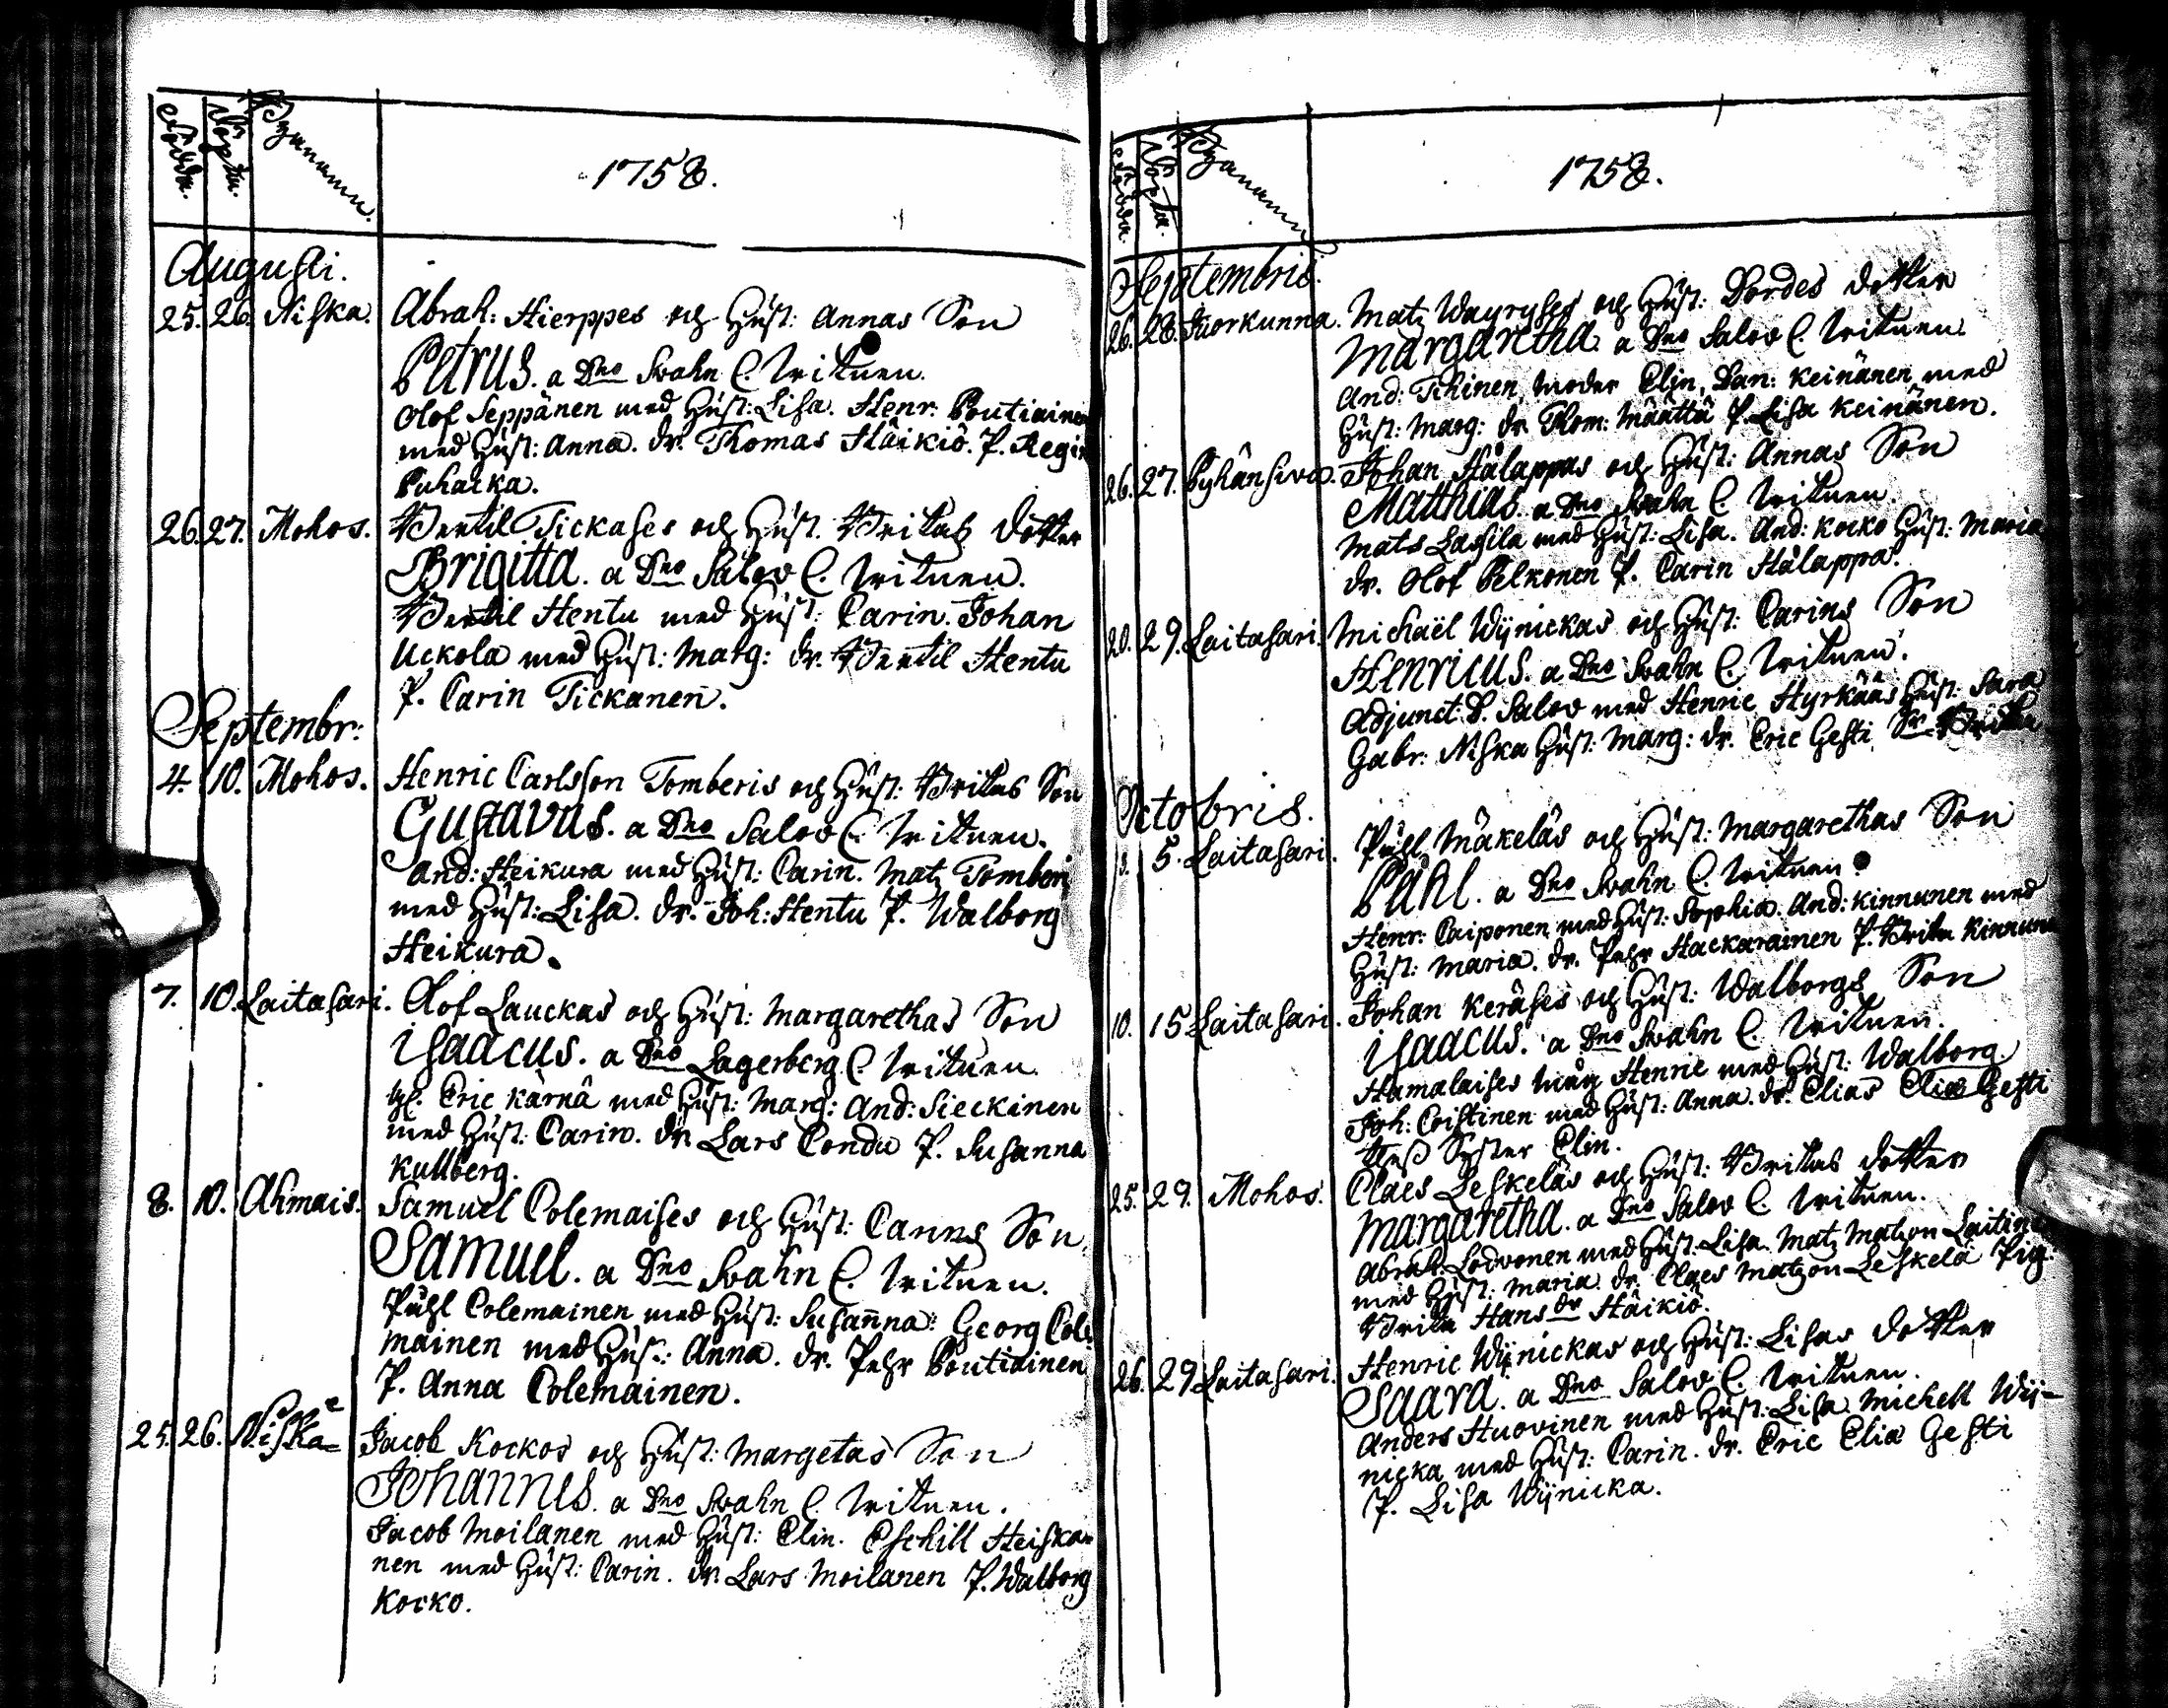 Födda. Döpta. Byanamn.
1758.
Augusti.
25. 26. Niska. Abrah: Hierppes och Hust: Annas Son
Petrus. a Dno Svahn C. Wittnen.
Olof Seppänen med Hust: Lisa. Henr: Poutiainen
med Hust: Anna. dr. Thomas Häikiö. P. Regin
Puhacka.
26. 27. Mohos. Bertil Tickases och Hust. Britas dotter
Brigitta. a Dno Salov C. Wittnen.
Bertil Hentu med Hust: Carin. Johan
Uckola med Hust: Marg: dr. Bertil Hentu
P. Carin Tickanen.
Septembr:
4. 10. Mohos. Henric Carlsson Tomberis och Hust: Britas Son
Gustavus. a Dno Salov C. Wittnen.
And: Heikura med Hust: Carin. Matz Tomberi
med Hust: Lisa. dr. Joh: Hentu P. Walborg
Heikura.
7. 10. Laitasari. Olof Lauckas och Hust: Margarethas Son
Isaacus. a Dno Lagerberg C. Wittnen.
Eric Kärnä med Hust: Marg: And: Sieckinen
med Hust: Carin. dr. Lars Condu P. Susanna
Kullberg.
8. 10. Ahmais. Samuel Colemaises och Hust: Carins Son
Samuel. a Dno Svahn C. Wittnen.
Påhl Colemainen med Hust: Susanna: Georg Cole
mainen med Hus: Anna. dr. Pehr Poutiainen
P. Anna Colemainen.
25. 26. Niska Jacob Kockos och Hust: Margetas Son
Johannes. a Dno Svahn C. Wittnen.
Jacob Moilanen med Hust: Elin. Eschill Heiska=
nen med Hust: Carin. dr. Lars Moilanen P. Walborg
Kocko.
Födda. Döpta. Byanamn
1758.
Septembris.
26. 28. Juorkunna. Matz Wäyryses och Hust: Bordes dotter
Margaretha. a Dno Salov C. Wittnen.
And: Tihinen, Moder Elin, Dan: Keinänen med
Hust: Marg: dr Thom: Määttä P. Lisa Keinänen.
26. 27. Pyhänsivu. Johan Hälappas och Hust: Annas Son
Matthias. a Dno Svahn C. Wittnen.
Mats Lassila med Hust: Lisa. And: Kocko Hust: Maria
dr. Olof Pelkonen P. Carin Hälappa.
20. 29. Laitasari. Michaël Wijnickas och Hust: Carins Son
Henricus. a Dno Svahn C. Wittnen.
Adjunct: D. Salov med Henric Hyrkääs Hust: Sara
Gabr: Niska Hust: Marg: dr. Eric Gesti
Octobris.
3. 5. Laitasari. Påhl Mäkeläs och Hust: Margarethas Son
Påhl. a Dno Svahn C. Wittnen.
Henr: Caiponen med Hust: Sophia. And: Kinnunen med
Hust: Maria. dr. Pehr Hackarainen P. Brita Kinnunen
10. 15 Laitasari. Johan Keräses och Hust: Walborgs Son
Isaacus. a Dno Svahn C. Wittnen.
Hamalaises måg Henric med Hust: Walborg.
Joh: Cristinen med Hust: Anna. dr. Elias Eliæ Gesti
dess Syster Elin.
25. 29. Mohos. Claes Leskeläs och Hust: Britas dotter
Margaretha. a Dno Salov C. Wittnen.
Abrah: Lodvonen med Hust: Lisa. Matz Matzon Laitinen
med Hust: Maria. dr. Claes Matzon Leskelä Pig.
Brita Hans dr Häikiö.
26. 29. Laitasari. Henric Wijnickas och Hust: Lisas dotter
Saara. a Dno Salov C. Wittnen.
Anders Huovinen med Hust: Lisa Michell Wij=
nicka med Hust: Carin. dr. Eric Eliæ Gesti
P. Lisa Wijnicka.